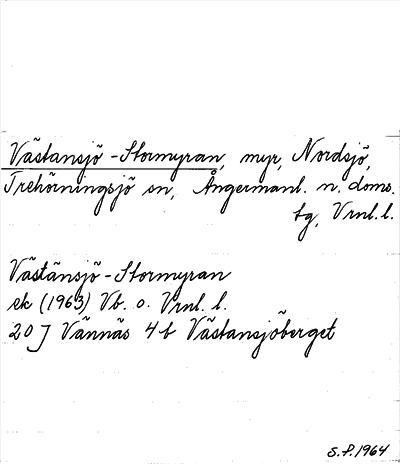 Västansjö-Stormyran, myr, Nordsjö,
Trehörningsjö sn, Ångermanl. n. doms.
tg, Vrnl. l.
Västansjö-Stormyran
ek (1963) Vb. o. Vrnl. l.
20 J Vännäs 4 b Västansjöberget
S.P. 1964